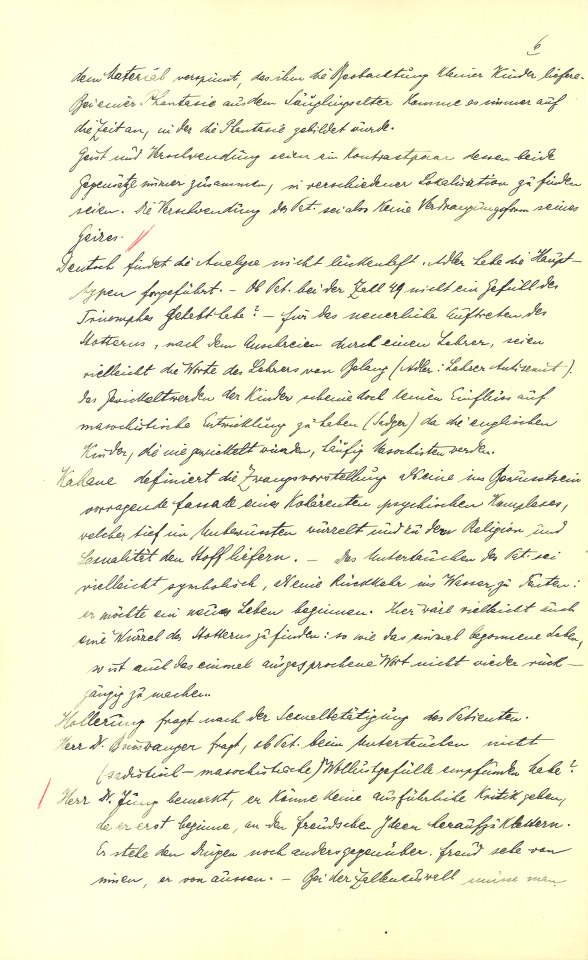 6
dem Material verspinnt, das ihm die Beobachtung kleiner Kinder liefere.
Bei einer Phantasie aus dem Säuglingsalter komme es immer auf
die Zeit an, in der die Phantasie gebildet wurde.
Geiz und Verschwendung seien ein Kontrastpaar dessen beide
Gegensätze immer zusammen, in verschiedener Lokalisation zu finden
seien. Die Verschwendung des Pat. sei also keine Verdrängungsform seines
Geizes.
Deutsch findet die Analyse nicht lückenhaft. Adler habe die Haupt-
typen vorgeführt. – Ob Pat. bei der Zahl 49 nicht ein Gefühl des
Triumphes gehabt habe? – für das neuerliche Auftreten des
Stotterns, nach dem Anschreien durch einen Lehrer, seien
vielleicht die Worte des Lehrers von Belang (Adler: Lehrer Antisemit).
Das Gewickeltwerden der Kinder scheine doch keinen Einfluss auf
masochistische Entwicklung zu haben (Sadger) da die englischen
Kinder, die nie gewickelt wurden, häufig Masochisten werden.
Kahane definiert die Zwangsvorstellung als eine ins Bewusstsein
vorragende Fassade eines kohärenten psychischen Komplexes,
welcher tief im Unbewussten wurzelt und zu dem Religion und
Sexualität den Stoff liefern. – Das Untertauchen des Pat. sei
vielleicht symbolisch, als eine Rückkehr ins Wasser zu deuten:
er möchte ein neues Leben beginnen. Hier wäre vielleicht auch
eine Wurzel des Stotterns zu finden: so wie das einmal begonnene Leben,
so ist auch das einmal ausgesprochene Wort nicht wieder rück-
gängig zu machen.
Hollerung fragt nach der Sexualbetätigung des Patienten.
Herr Dr. Binswanger fragt, ob Pat. beim Untertauchen nicht
(sadistisch – masochistische) Wollustgefühle empfunden habe?
Herr Dr. Jung bemerkt, er könne keine ausführliche Kritik geben,
da er erst beginne, an den Freudschen Ideen heraufzuklettern.
Er stehe den Dingen noch anders gegenüber. Freud sehe von
innen, er von aussen. – Bei der Zahlenauswahl müsse man